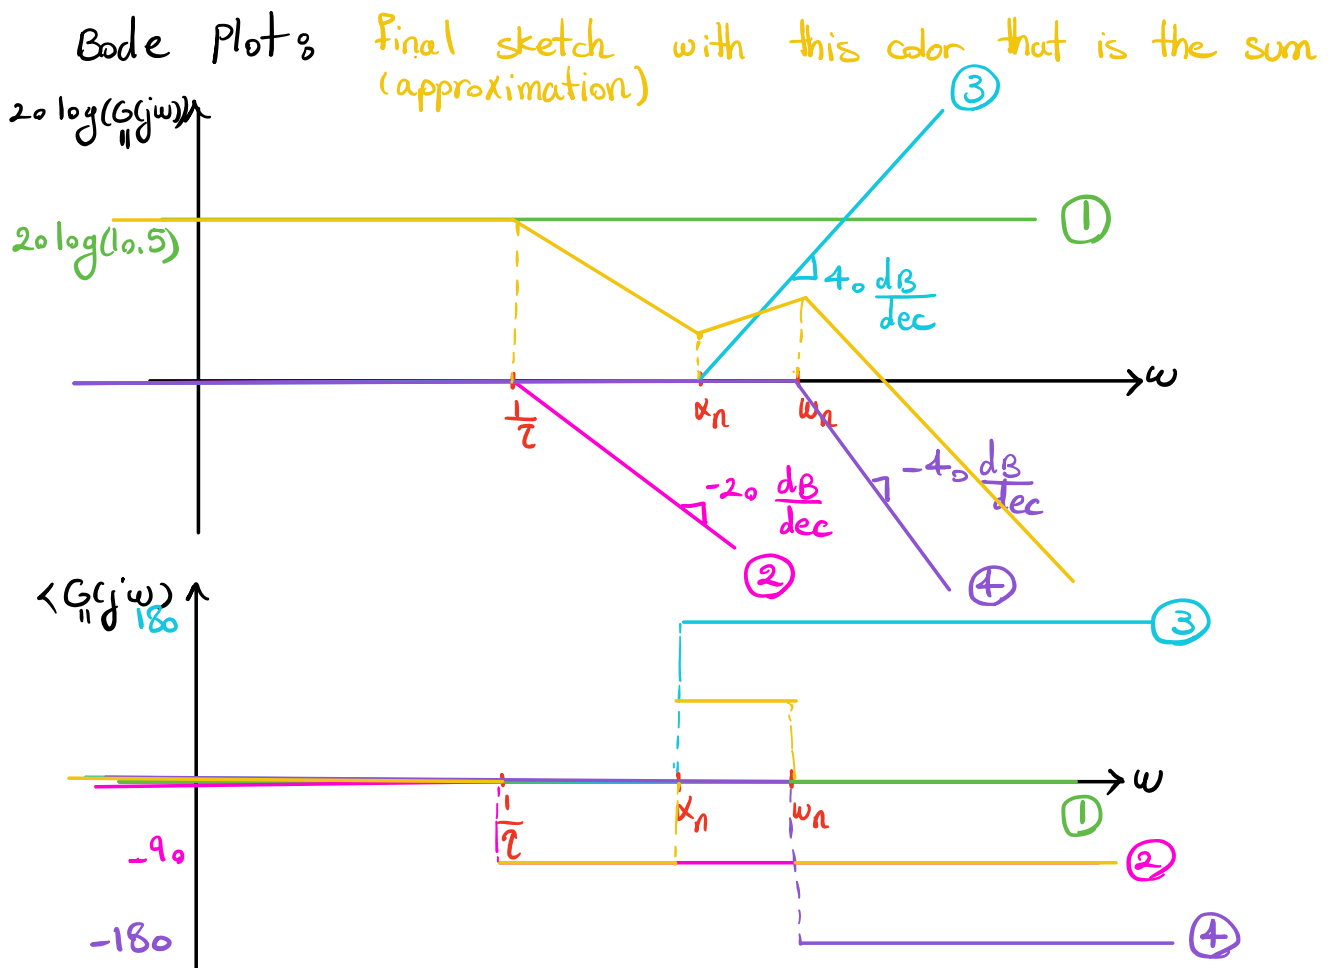 Bode Plot: Final sketch with this color that is the sum
(approximation)
20 log(G(jω))
3
1
20 log(10.5)
40 dB/dec
ω
1/τ
αn
ωn
-20 dB/dec
-40 dB/dec
2
4
<G(jω)
180
3
ω
1/τ
αn
ωn
1
-90
2
-180
4